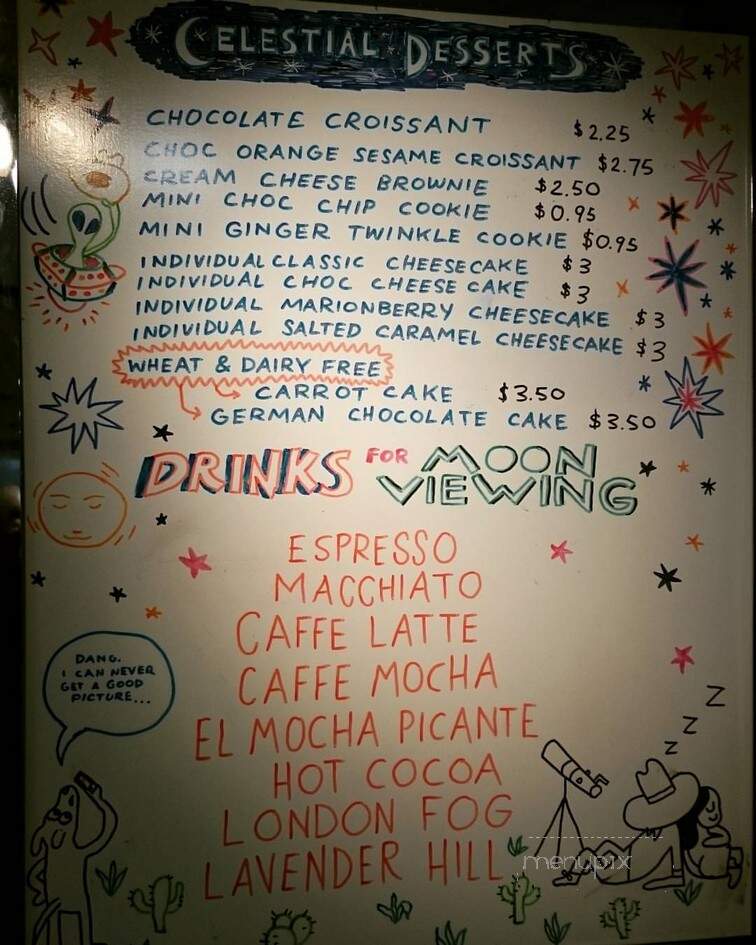 CELESTIAL DESSERTS
CHOCOLATE CROISSANT $2.25
CHOC ORANGE SESAME CROISSANT $2.75
CREAM CHEESE BROWNIE $2.50
MINI CHOC CHIP COOKIE $0.95
MINI GINGER TWINKLE COOKIE $0.95
INDIVIDUAL CLASSIC CHEESECAKE $3
INDIVIDUAL CHOC CHEESE CAKE $3
INDIVIDUAL MARIONBERRY CHEESECAKE $3
INDIVIDUAL SALTED CARAMEL CHEESECAKE $3
WHEAT & DAIRY FREE
CARROT CAKE $3.50
GERMAN CHOCOLATE CAKE $3.50
DRINKS FOR MOON
VIEWING
ESPRESSO
MACCHIATO
CAFFE LATTE
CAFFE MOCHA
EL MOCHA PICANTE
HOT COCOA
LONDON FOG
LAVENDER HILL
DANG.
I CAN NEVER
GET A GOOD
PICTURE...
Z
Z
Z
menupix